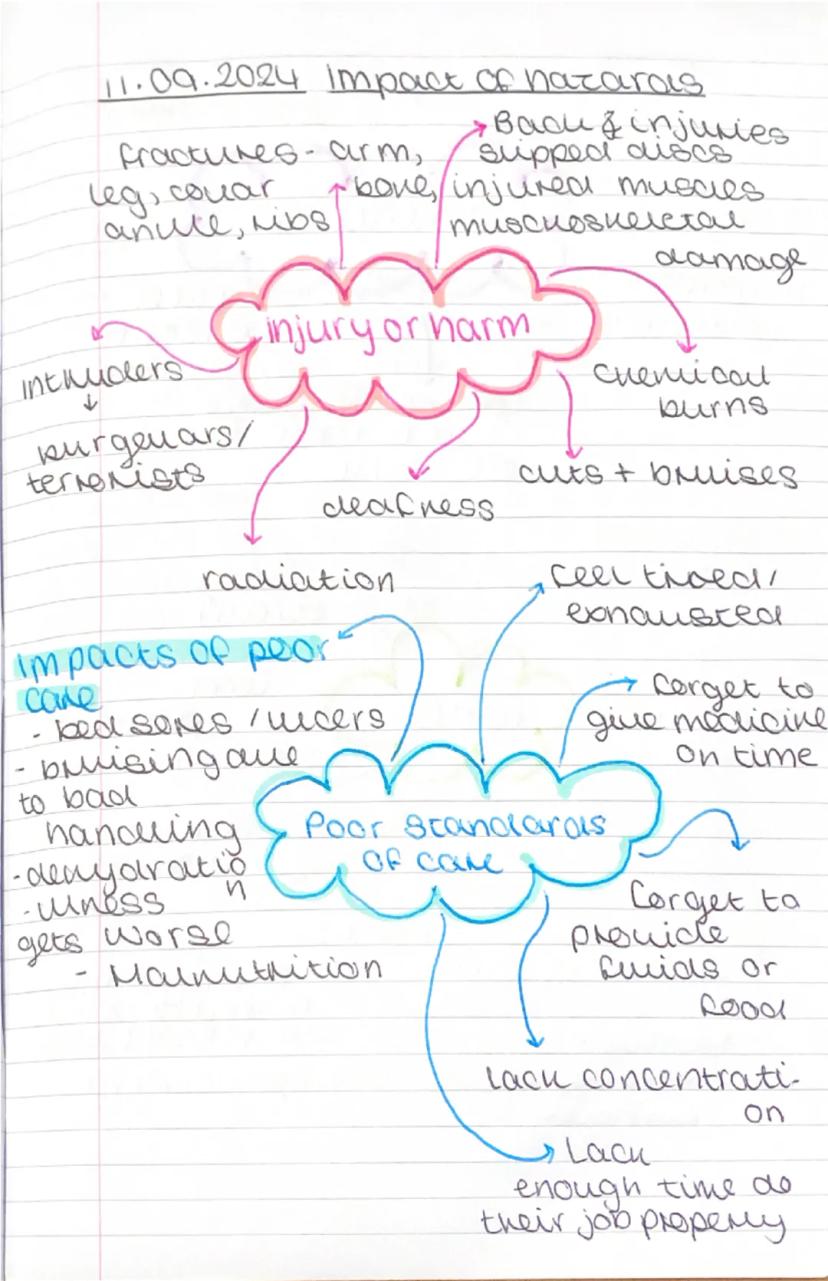 11.09.2024 Impact of hazards
fractures - arm,
leg, collar bone,
ankle, ribs
Back & injuries
slipped discs
injured muscles
muschoskeletal
damage
injury or harm
intruders
burgelars/
terrorists
chemical
burns
cuts + bruises
deafness
radiation
feel tired/
exhausted
Impacts of poor
care
- bed sores / ulcers
- bruising due
to bad
handling
- dehydratio
n
- illness
gets worse
- Malnutrition
forget to
give medicine
on time
Poor standards
of care
forget to
provide
fluids or
food
lack concentrati-
on
Lack
enough time do
their job properly